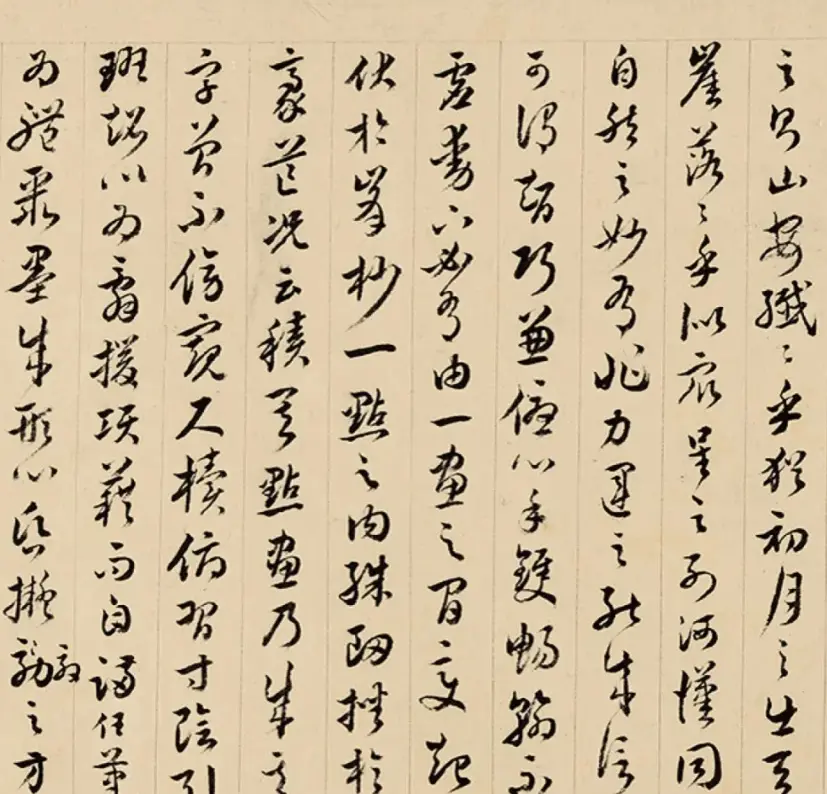 之則山安纖〻乎猶初月之出天
崖落〻乎似衆星之列河漢同
自然之妙有非力運之能成信
可謂智巧兼優心手雙暢翰不
虛動下必有由一畫之間變起
伏於峯杪一點之內殊衄挫於
豪芒況云積其點畫乃成其
字曾不傍窺尺牘俯習寸陰引
班超以為辭援項籍而自滿任筆
為體聚墨成形心昏擬効之方